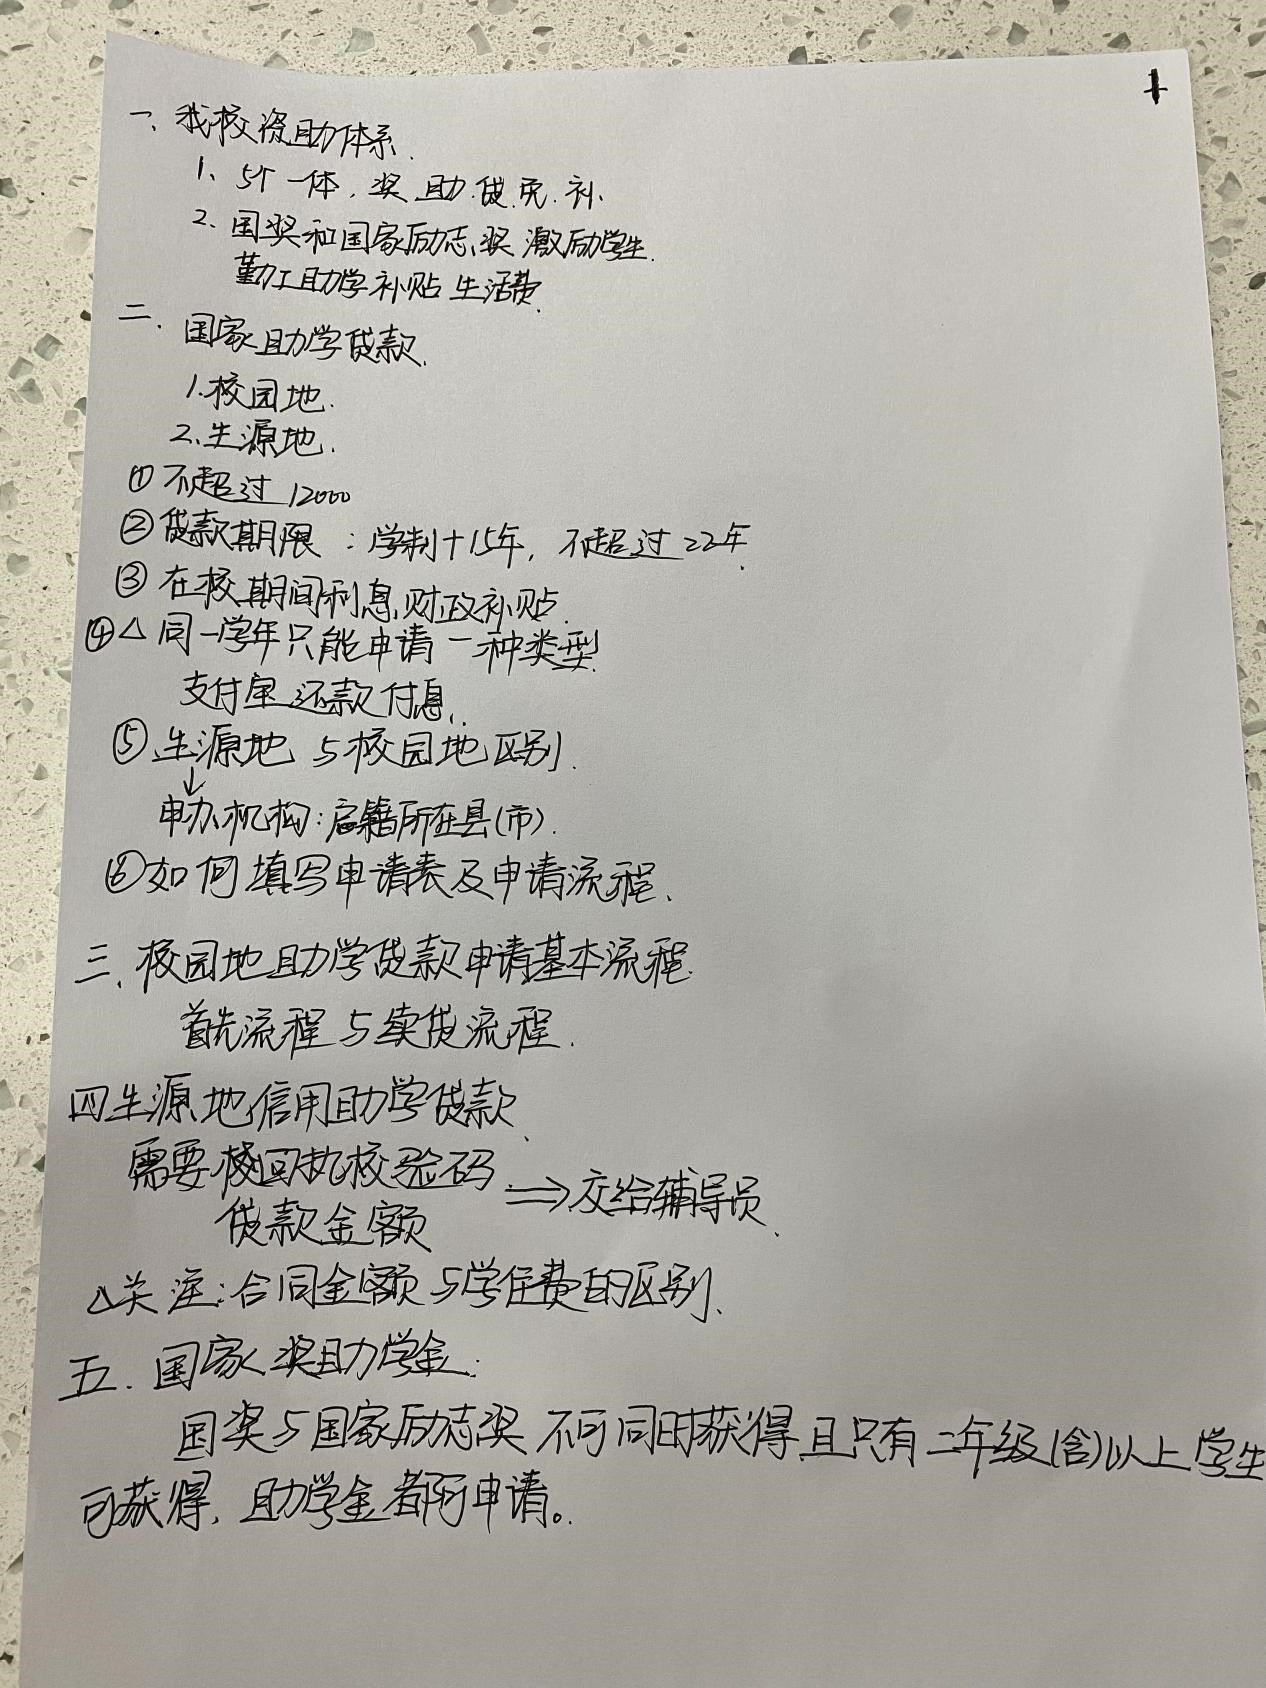 1
一、我校资助体系.
1、5个一体.奖.助.贷.免.补.
2、国奖和国家励志奖 激励学生.
勤工助学补贴 生活费.
二、国家助学贷款.
1.校园地.
2.生源地.
①不超过12000
②贷款期限:学制+15年,不超过22年.
③在校期间利息财政补贴.
④△同一学年只能申请一种类型.
支付宝还款付息.
⑤生源地与校园地区别.
↓
申办机构:户籍所在县(市).
⑥如何填写申请表及申请流程.
三、校园地助学贷款申请基本流程.
首先流程与续贷流程.
四生源地信用助学贷款.
需要 校回执校验码
⇒交给辅导员.
贷款金额
△关注:合同金额与学住费的区别.
五.国家奖助学金.
国奖与国家励志奖 不可同时获得,且只有二年级(含)以上学生
可获得,助学金都可申请。